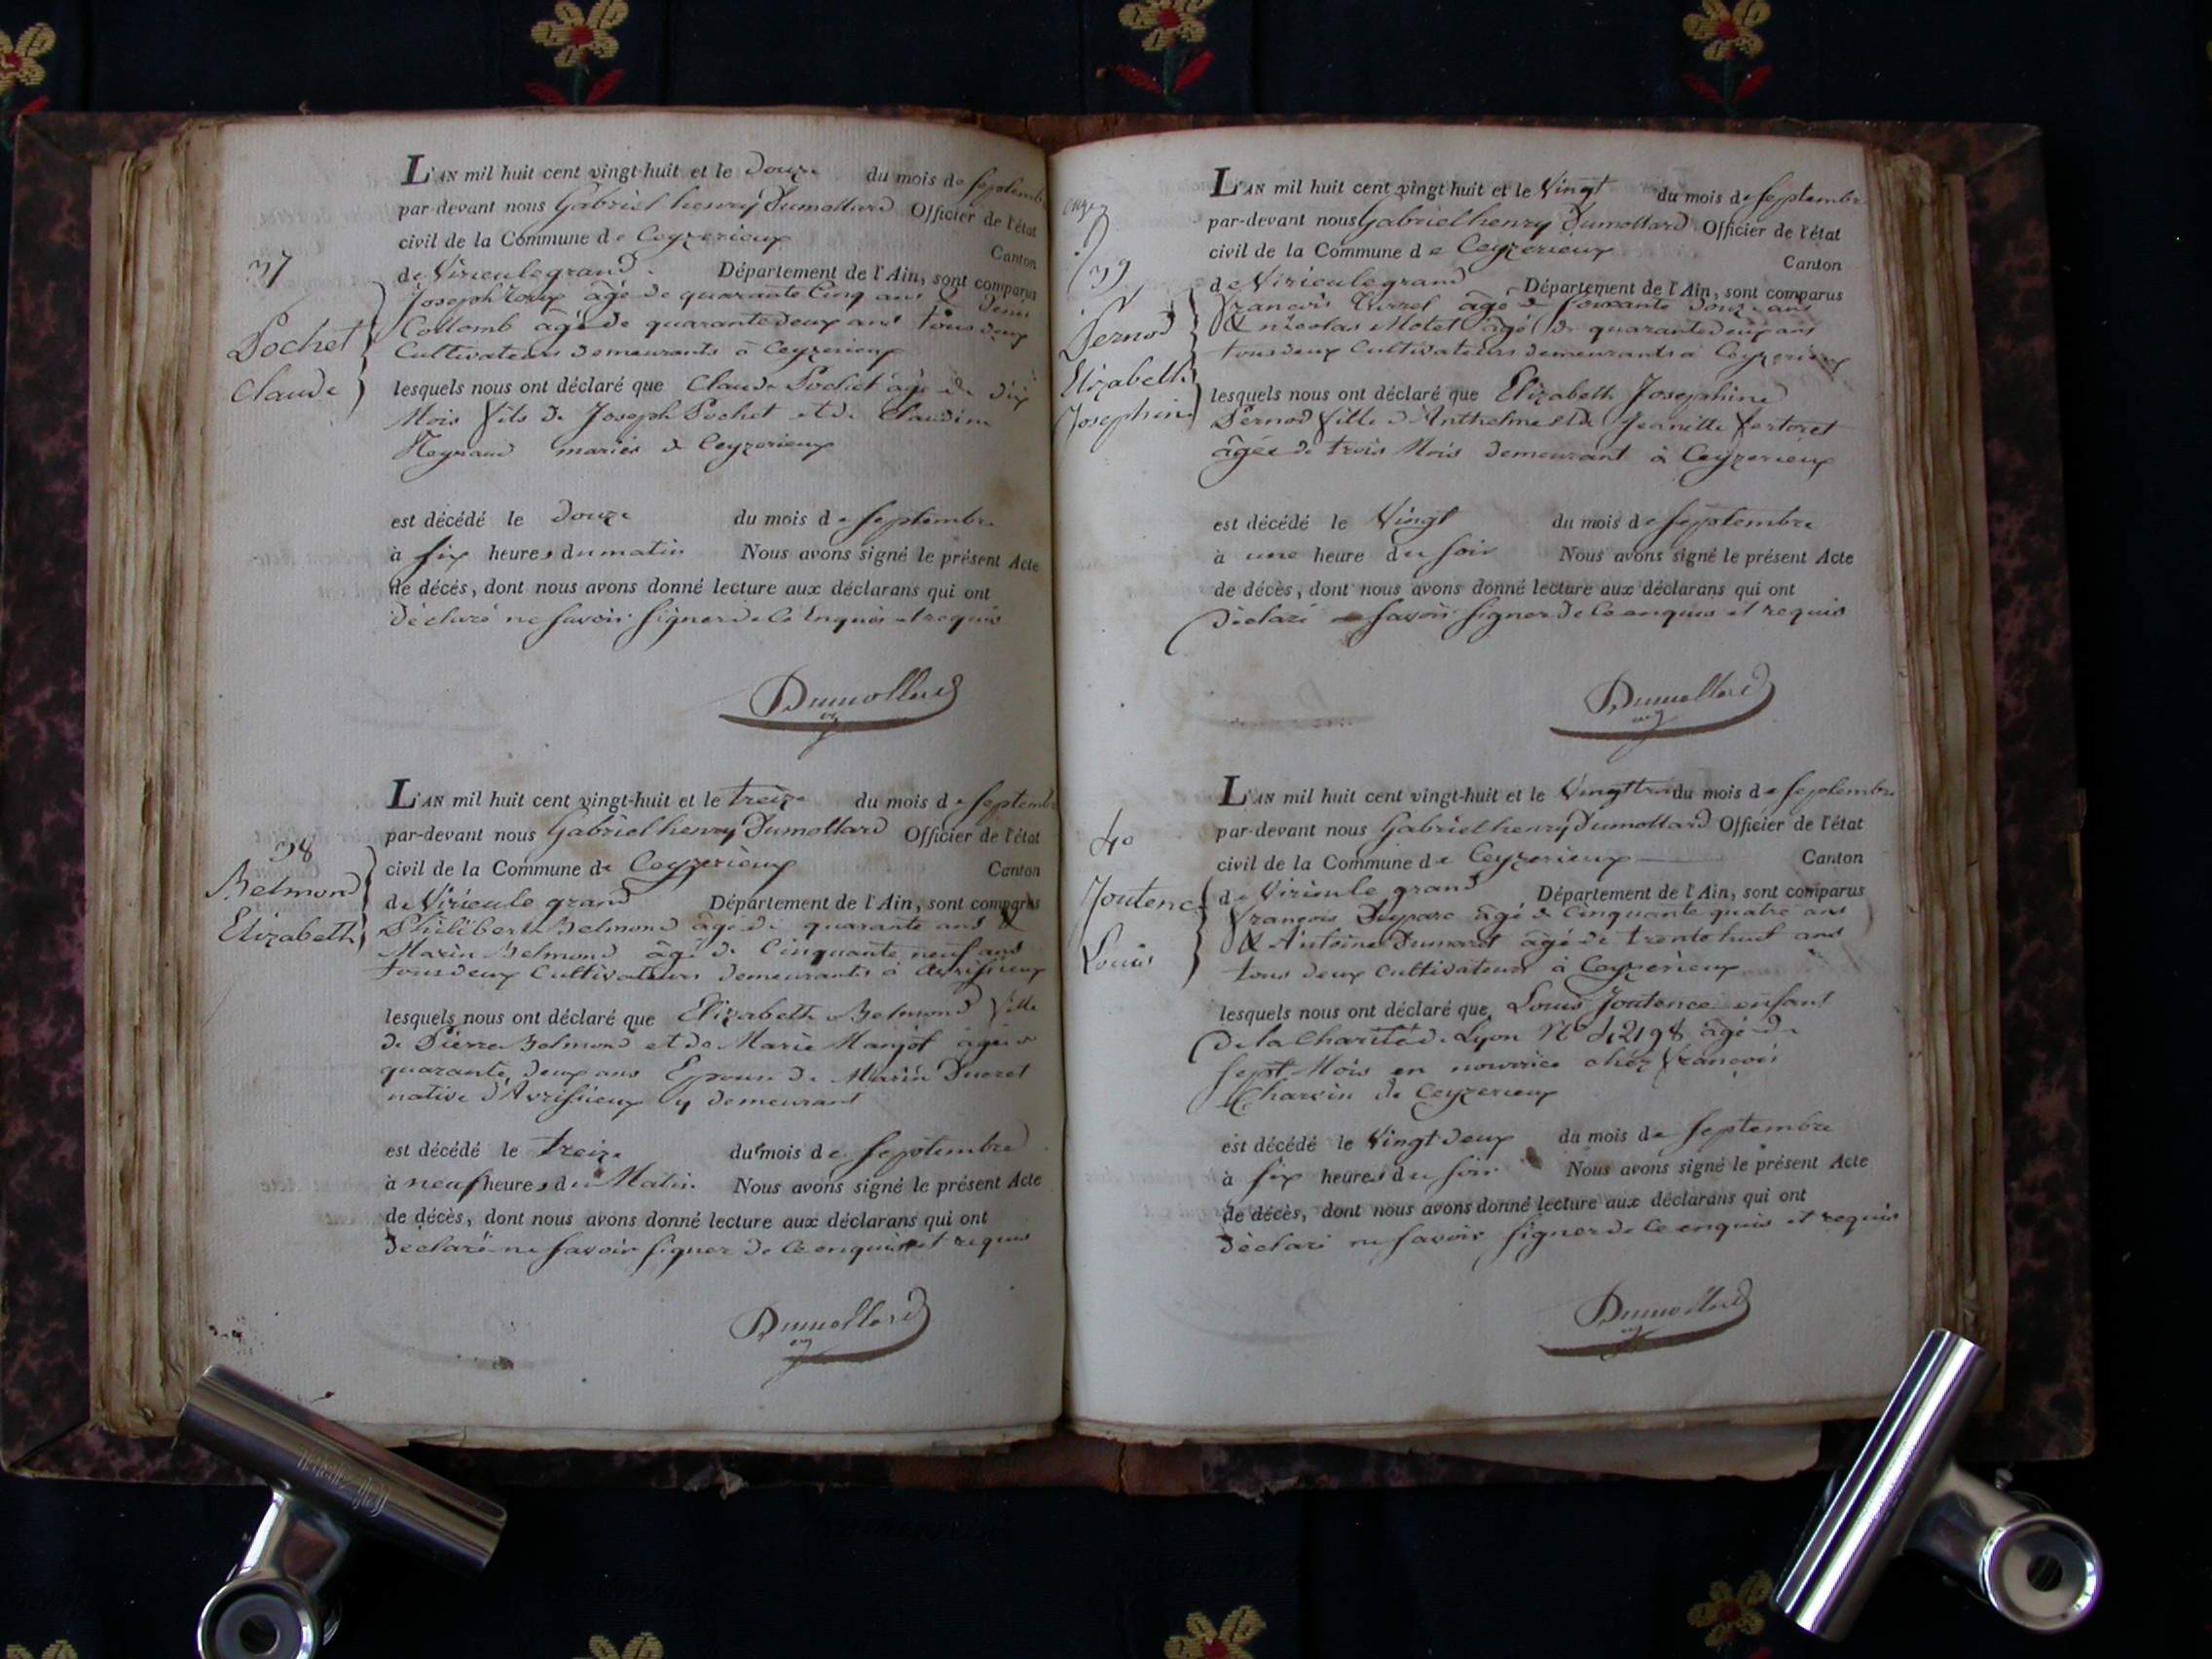 37
Pochet
Claude
L'AN mil huit cent vingt-huit et le Douze du mois de septembre
par-devant nous Gabriel henry Dumollard Officier de l'état
civil de la Commune de Ceyzerieux Canton
de Virieulegrand. Département de l'Ain, sont comparus
Joseph Roux âgé de quarante Cinq ans & Denis
Collomb âgé de quarante deux ans tous deux
Cultivateurs demeurants à Ceyzerieux
lesquels nous ont déclaré que Claude Pochet âgé de dix
Mois fils de Joseph Pochet et de Claudine
Reynaud mariés de Ceyzerieux
est décédé le Douze du mois de septembre
à six heures du matin Nous avons signé le présent Acte
de décès, dont nous avons donné lecture aux déclarans qui ont
Déclaré ne savoir signer de Ce Enquis et requis
Dumollard
38
Belmond
Elizabeth
L'AN mil huit cent vingt-huit et le treize du mois de septembre
par-devant nous Gabriel henry Dumollard Officier de l'état
civil de la Commune de Ceyzerieux Canton
de Virieule grand Département de l'Ain, sont comparus
Philibert Belmond âgé de quarante ans &
Marin Belmond âgé de Cinquante neuf ans
tous deux Cultivateurs demeurants à Avrissieux
lesquels nous ont déclaré que Elizabeth Belmond fille
de Pierre Belmond et de Marie Manjot âgée de
quarante deux ans Epouse de Marin Ducret
native d'Avrissieux y demeurant
est décédé le treize du mois de Septembre
à neuf heures du Matin. Nous avons signé le présent Acte
de décès, dont nous avons donné lecture aux déclarans qui ont
Déclaré ne savoir signer de Ce enquis et requis
Dumollard
39
Pernod
Elizabeth
Josephine
L'AN mil huit cent vingt-huit et le Vingt du mois de septembre
par-devant nous Gabriel henry Dumollard Officier de l'état
civil de la Commune de Ceyzerieux Canton
de Virieulegrand Département de l'Ain, sont comparus
François âgé de soixante Douze ans
& nicolas Motet âgé de quarante deux ans
tous deux Cultivateurs demeurants à Ceyzerieux
lesquels nous ont déclaré que Elizabeth Josephine
Pernod fille d'Anthelme et de Jeanette Fertoret
âgée de trois Mois demeurant à Ceyzerieux
est décédé le Vingt du mois de septembre
à une heure du soir Nous avons signé le présent Acte
de décès, dont nous avons donné lecture aux déclarans qui ont
Déclaré ne savoir signer de Ce enquis et requis
Dumollard
40
Joutence
Louis
L'AN mil huit cent vingt-huit et le Vingttrois du mois de septembre
par-devant nous Gabriel henry Dumollard Officier de l'état
civil de la Commune de Ceyzerieux Canton
de Virieule grand Département de l'Ain, sont comparus
François Duparc âgé de Cinquante quatre ans
& Antoine Dumaret âgé de trente huit ans
tous deux Cultivateurs à Ceyzerieux
lesquels nous ont déclaré que Louis Joutence enfant
De la Charité de Lyon N° 42198 âgé de
sept Mois en nourrice chez François
Charvin de Ceyzerieux
est décédé le Vingt deux du mois de septembre
à six heures du soir Nous avons signé le présent Acte
de décès, dont nous avons donné lecture aux déclarans qui ont
Déclaré ne savoir signer de Ce enquis et requis
Dumollard